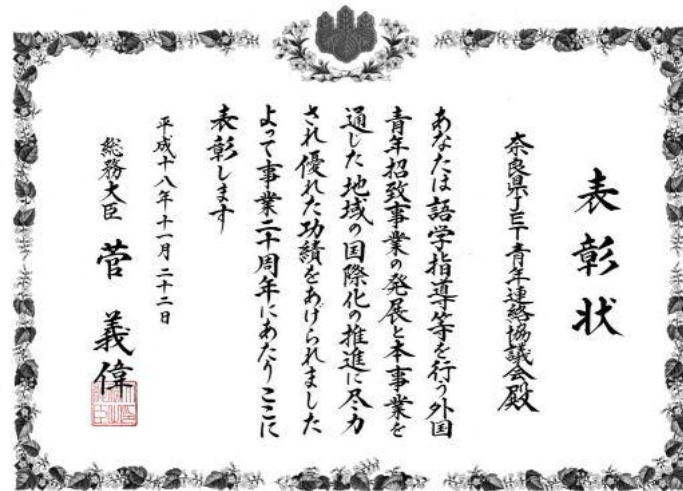 表彰状
奈良県JET青年連絡協議会殿
あなたは語学指導等を行う外国
青年招致事業の発展と本事業を
通じた地域の国際化の推進に尽力
され優れた功績をあげられました
よって事業二十周年にあたりここに
表彰します
平成十八年十一月二十二日
総務大臣 菅義偉